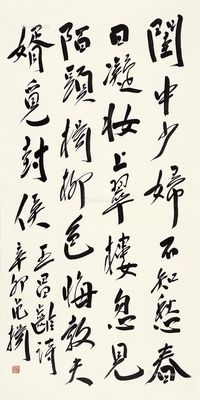 閨中少婦不知愁春
日凝妆上翠樓忽見
陌頭楊柳色悔教夫
婿覓封侯 王昌齡詩
辛卯范揚